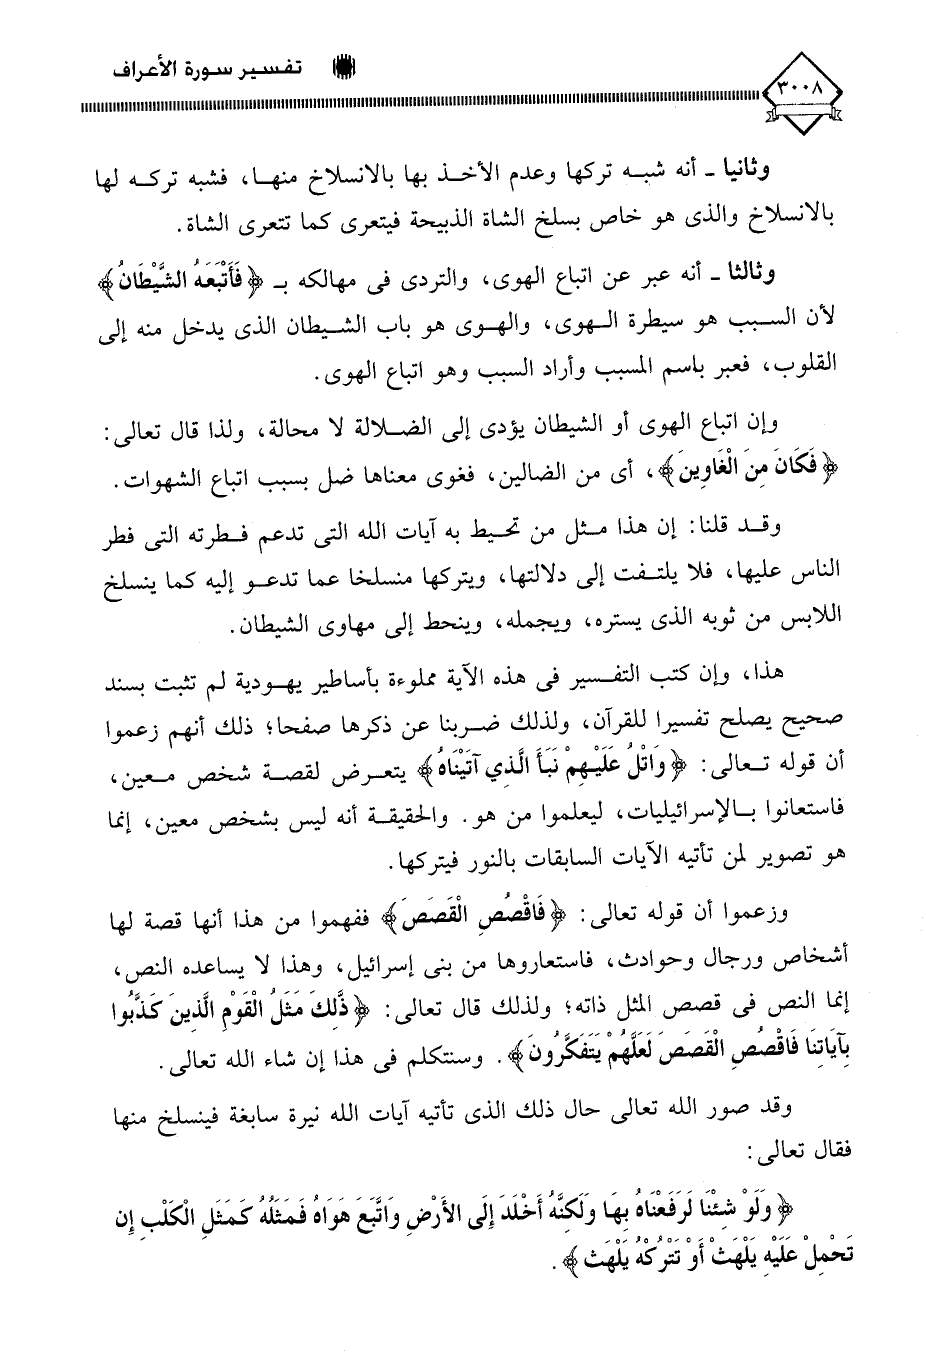 تفسير سورة الأعراف
٣٠٠٨
وثانيا ـ أنه شبه تركها وعدم الأخذ بها بالانسلاخ منها، فشبه تركه لها
بالانسلاخ والذى هو خاص بسلخ الشاة الذبيحة فيتعرى كما تتعرى الشاة.
وثالثا ـ أنه عبر عن اتباع الهوى، والتردى فى مهالكه بـ ﴿فَأَتْبَعَهُ الشَّيْطَانُ﴾
لأن السبب هو سيطرة الهوى، والهوى هو باب الشيطان الذى يدخل منه إلى
القلوب، فعبر باسم المسبب وأراد السبب وهو اتباع الهوى.
وإن اتباع الهوى أو الشيطان يؤدى إلى الضلالة لا محالة، ولذا قال تعالى:
﴿فَكَانَ مِنَ الْغَاوِينَ﴾، أى من الضالين، فغوى معناها ضل بسبب اتباع الشهوات.
وقد قلنا: إن هذا مثل من تحيط به آيات الله التى تدعم فطرته التى فطر
الناس عليها، فلا يلتفت إلى دلالتها، ويتركها منسلخا عما تدعو إليه كما ينسلخ
اللابس من ثوبه الذى يستره، ويجمله، وينحط إلى مهاوى الشيطان.
هذا، وإن كتب التفسير فى هذه الآية مملوءة بأساطير يهودية لم تثبت بسند
صحيح يصلح تفسيرا للقرآن، ولذلك ضربنا عن ذكرها صفحا؛ ذلك أنهم زعموا
أن قوله تعالى: ﴿وَاتْلُ عَلَيْهِمْ نَبَأَ الَّذِي آتَيْنَاهُ﴾ يتعرض لقصة شخص معين،
فاستعانوا بالإسرائيليات، ليعلموا من هو. والحقيقة أنه ليس بشخص معين، إنما
هو تصوير لمن تأتيه الآيات السابقات بالنور فيتركها.
وزعموا أن قوله تعالى: ﴿فَاقْصُصِ الْقَصَصَ﴾ ففهموا من هذا أنها قصة لها
أشخاص ورجال وحوادث، فاستعاروها من بنى إسرائيل، وهذا لا يساعده النص،
إنما النص فى قصص المثل ذاته؛ ولذلك قال تعالى: ﴿ذَّلِكَ مَثَلُ الْقَوْمِ الَّذِينَ كَذَّبُوا
بِآيَاتِنَا فَاقْصُصِ الْقَصَصَ لَعَلَّهُمْ يَتَفَكَّرُونَ﴾. وسنتكلم فى هذا إن شاء الله تعالى.
وقد صور الله تعالى حال ذلك الذى تأتيه آيات الله نيرة سابغة فينسلخ منها
فقال تعالى:
﴿وَلَوْ شِئْنَا لَرَفَعْنَاهُ بِهَا وَلَكِنَّهُ أَخْلَدَ إِلَى الأَرْضِ وَاتَّبَعَ هَوَاهُ فَمَثَلُهُ كَمَثَلِ الْكَلْبِ إِن
تَحْمِلْ عَلَيْهِ يَلْهَثْ أَوْ تَتْرُكْهُ يَلْهَث﴾.